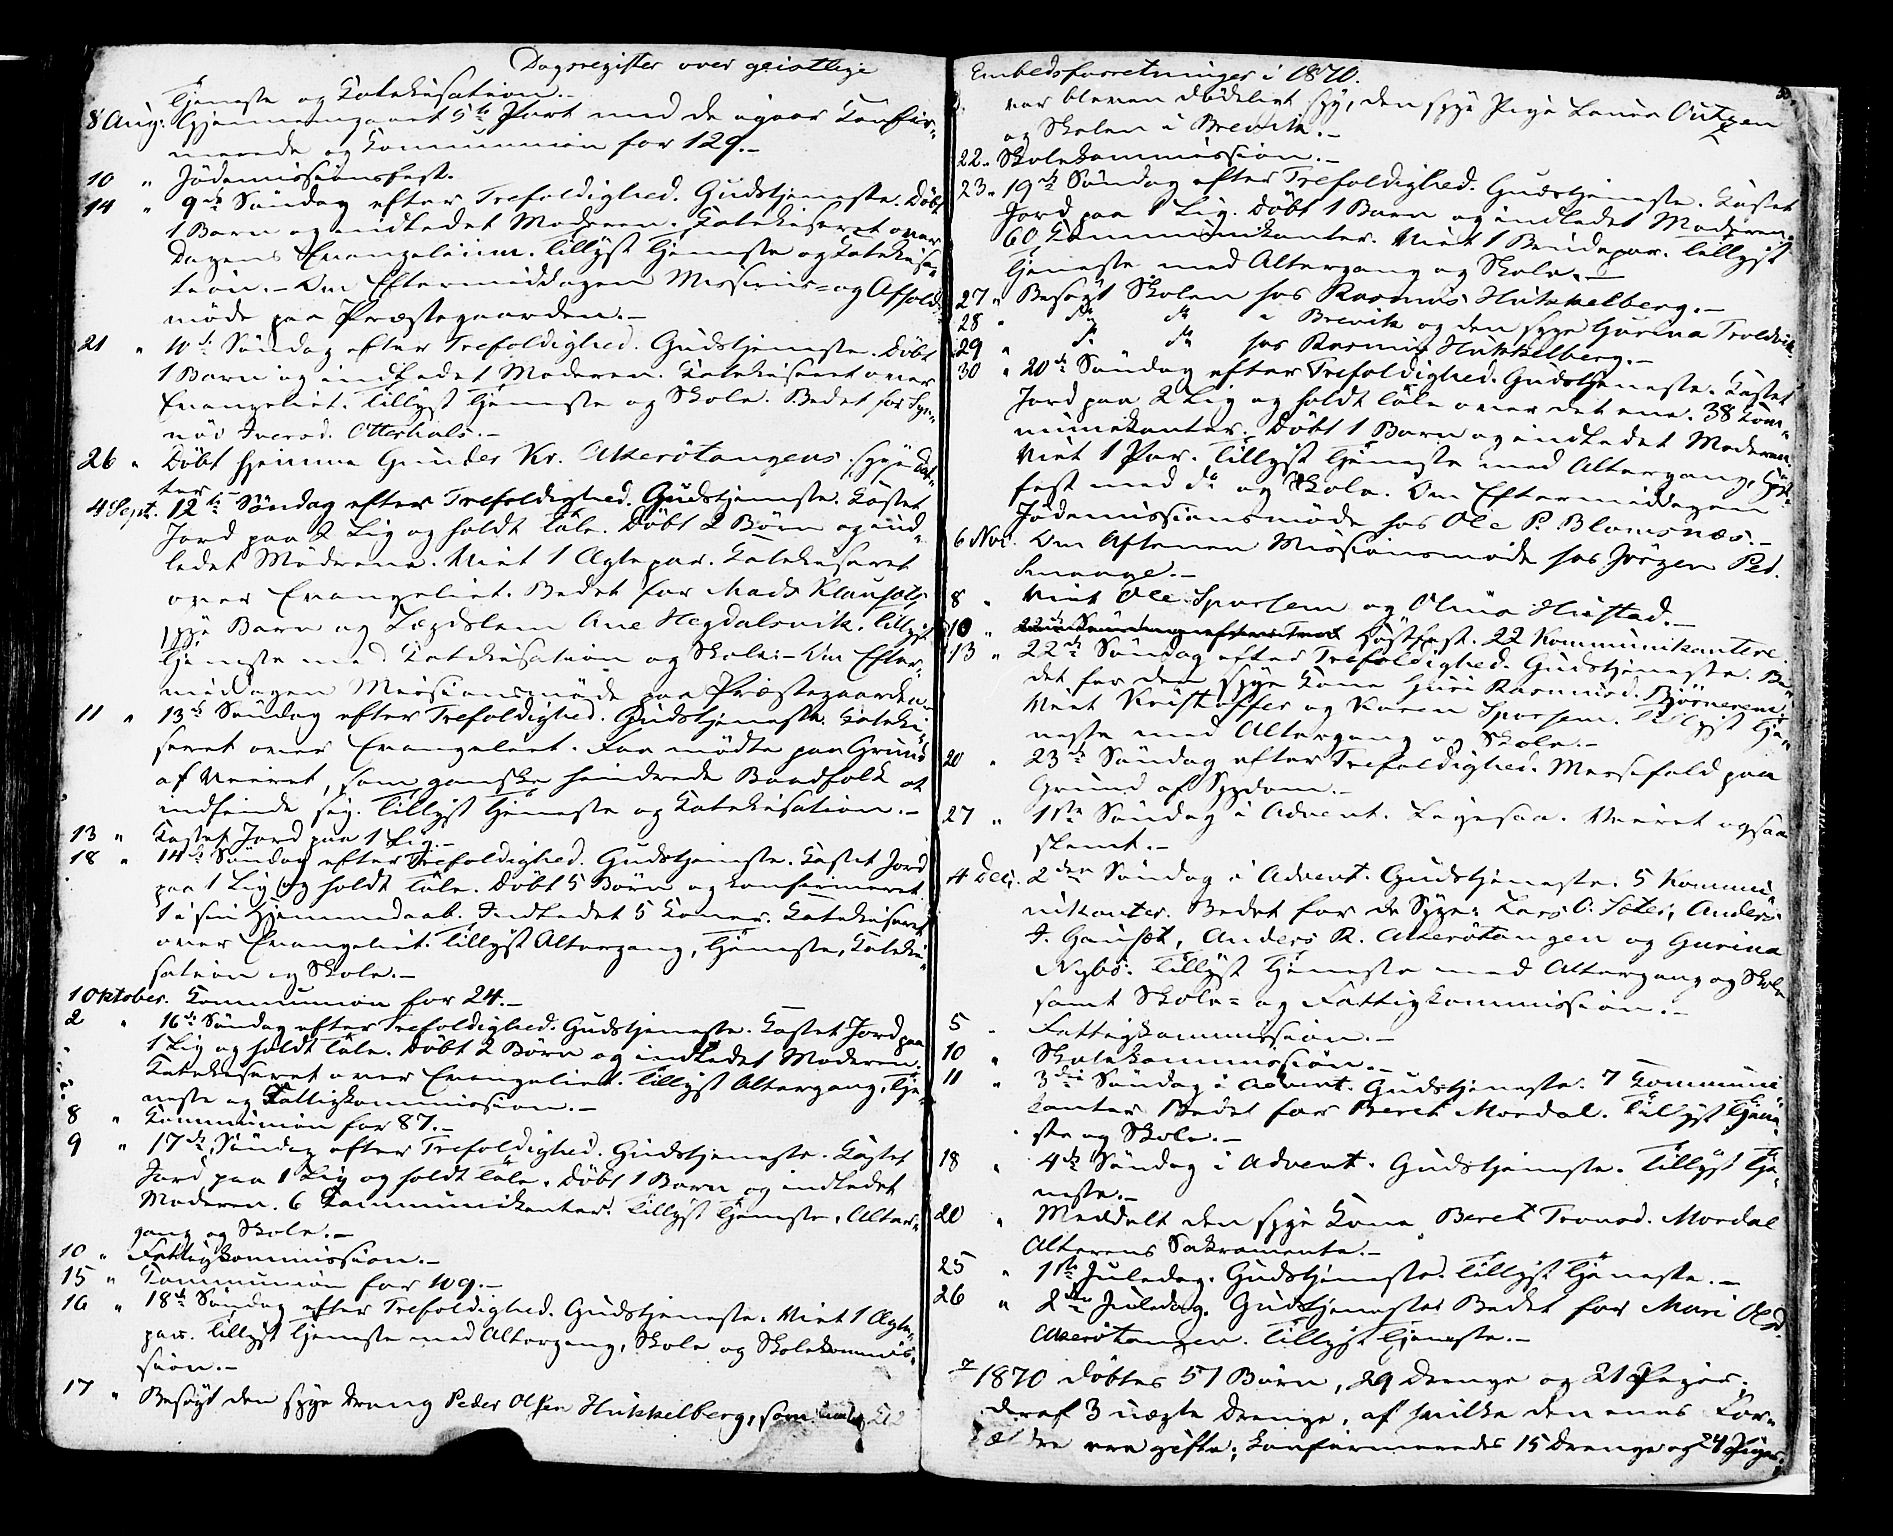 Dagsregister over geistlige
Tjeneste og Katekisation.-
8 Aug. Gjennemgaaet 5te Part med de igaar Konfir-
merede og Kommunion for 129.-
10 " Jødemissionsfest.
14 " 9de Søndag efter Trefoldighed. Gudstjeneste. Døbt
1 Barn og indledet Moderen. Katekiseret over
Dagens Evangelium. Tillyst Tjeneste og Katekisa-
tion.- Om Eftermiddagen Missions- og Afholds-
møde paa Præstegaarden.-
21 " 10de Søndag efter Trefoldighed. Gudstjeneste. Døbt
1 Barn og indledet Moderen. Katekiseret over
Evangeliet. Tillyst Tjeneste og Skole. Bedet for
Iversd. Otterhals.-
26 " Døbt hjemme Gunder Kr. Akerøtangens syge Dat-
ter.
4 Sept. 12te Søndag efter Trefoldighed. Gudstjeneste. Kastet
Jord paa 2 Lig og holdt Tale. Døbt 2 Børn og ind-
ledet Mødrene. Viet 1 Ægtepar. Katekiseret
over Evangeliet. Bedet for Mads Klausets
syge Barn og Lægdslem Ane Hegdalsvik. Tillyst
Tjeneste med Katekisation og Skole.- Om Efter-
middagen Missionsmøde paa Præstegaarden.
11 " 13de Søndag efter Trefoldighed. Gudstjeneste. Kateki-
seret over Evangeliet. Faa mødte paa Grund
af Veiret, som ganske hindrede Baadfolk at
indfinde sig. Tillyst Tjeneste og Katekisation.-
13 " Kastet Jord paa 1 Lig.-
18 " 14de Søndag efter Trefoldighed. Gudstjeneste. Kastet Jord
paa 1 Lig og holdt Tale. Døbt 5 Børn og konfirmeret
1 i sin Hjemmedaab. Indledet 5 Koner. Katekiseret
over Evangeliet. Tillyst Altergang, Tjeneste, Kateki-
sation og Skole.-
1 Oktober. Kommunion for 24.-
2 " 16de Søndag efter Trefoldighed. Gudstjeneste. Kastet Jord paa
1 Lig og holdt Tale. Døbt 2 Børn og indledet Moderen.
Katekiseret over Evangeliet. Tillyst Altergang, Tje-
neste og Fattigkommission.-
8 " Kommunion for 87.-
9 " 17de Søndag efter Trefoldighed. Gudstjeneste. Kastet
Jord paa 1 Lig og holdt Tale. Døbt 1 Barn og indledet
Moderen. 6 Kommunikanter. Tillyst Tjeneste, Alter-
gang og Skole.-
10 " Fattigkommission.-
15 " Kommunion for 109.-
16 " 18de Søndag efter Trefoldighed. Gudstjeneste. Viet 1 Ægte-
par. Tillyst Tjeneste med Altergang, Skole og Skolekommis-
sion.-
17 " Besøgt den syge Dreng Peder Olsen Hukkelberg, som
Embedsforretninger i 1870.
var bleven dødeligt syg, den syge Pige Laura Outzen
og Skolen i Brevik.-
22 " Skolekommission.-
23 " 19de Søndag efter Trefoldighed. Gudstjeneste. Kastet
Jord paa 1 Lig. Døbt 1 Barn og indledet Moderen.
60 Kommunikanter. Viet 1 Brudepar. Tillyst
Tjeneste med Altergang og Skole.-
27 " Besøgt Skolen hos Rasmus Hukkelberg.-
28 " do do i Brevik og den syge Gurina Troldvik.
29 " do do hos Rasmus Hukkelberg.-
30 " 20de Søndag efter Trefoldighed. Gudstjeneste. Kastet
Jord paa 2 Lig og holdt Tale over det ene. 38 Kom-
munikanter. Døbt 1 Barn og indledet Moderen.
Viet 1 Par. Tillyst Tjeneste med Altergang, Høst-
fest med do og Skole. Om Eftermiddagen
Jødemissionsmøde hos Ole P. Blomsnæs.-
6 Nov. Om Aftenen Missionsmøde hos Jørgen Ped.
Sunange.-
8 " Viet Ole Sporsem og Olina Hustad.-
10 " Høstfest. 22 Kommunikantere.
13 " 22de Søndag efter Trefoldighed. Gudstjeneste. Be-
det for den syge Kone Guri Rasmusd. Bjørnerem.
Viet Kristoffer og Karen Sporsem. Tillyst Tje-
neste med Altergang og Skole.-
20 " 23de Søndag efter Trefoldighed. Messefald paa
Grund af Sygdom.-
27 " 1ste Søndag i Advent. Ligesaa. Veiret ogsaa
slemt.-
4 Dec. 2den Søndag i Advent. Gudstjeneste. 5 Kommu-
nikanter. Bedet for de Syge: Lars O. Sæter, Anders
J. Gauset, Anders R. Akerøtangen og Gurina
Nybø. Tillyst Tjeneste med Altergang og Skole
samt Skole- og Fattigkommission.-
5 " Fattigkommission.-
10 " Skolekommission.-
11 " 3die Søndag i Advent. Gudstjeneste. 7 Kommuni-
kanter. Bedet for Beret Mordal. Tillyst Tjene-
ste og Skole.-
18 " 4de Søndag i Advent. Gudstjeneste. Tillyst Tje-
neste.-
20 " Meddelt den syge Kone Beret Tronsd. Mordal
Alterens Sakramente.-
25 " 1ste Juledag. Gudstjeneste. Tillyst Tjeneste.-
26 " 2den Juledag. Gudstjeneste. Bedet for Mari Olsd.
Akerøtangen. Tillyst Tjeneste.-
I 1870 døbtes 51 Børn, 29 Drenge og 21 Piger,
deraf 3 uægte Drenge, af hvilke den enes For-
ældre ere gifte; konfirmeredes 15 Drenge og 24 Piger;